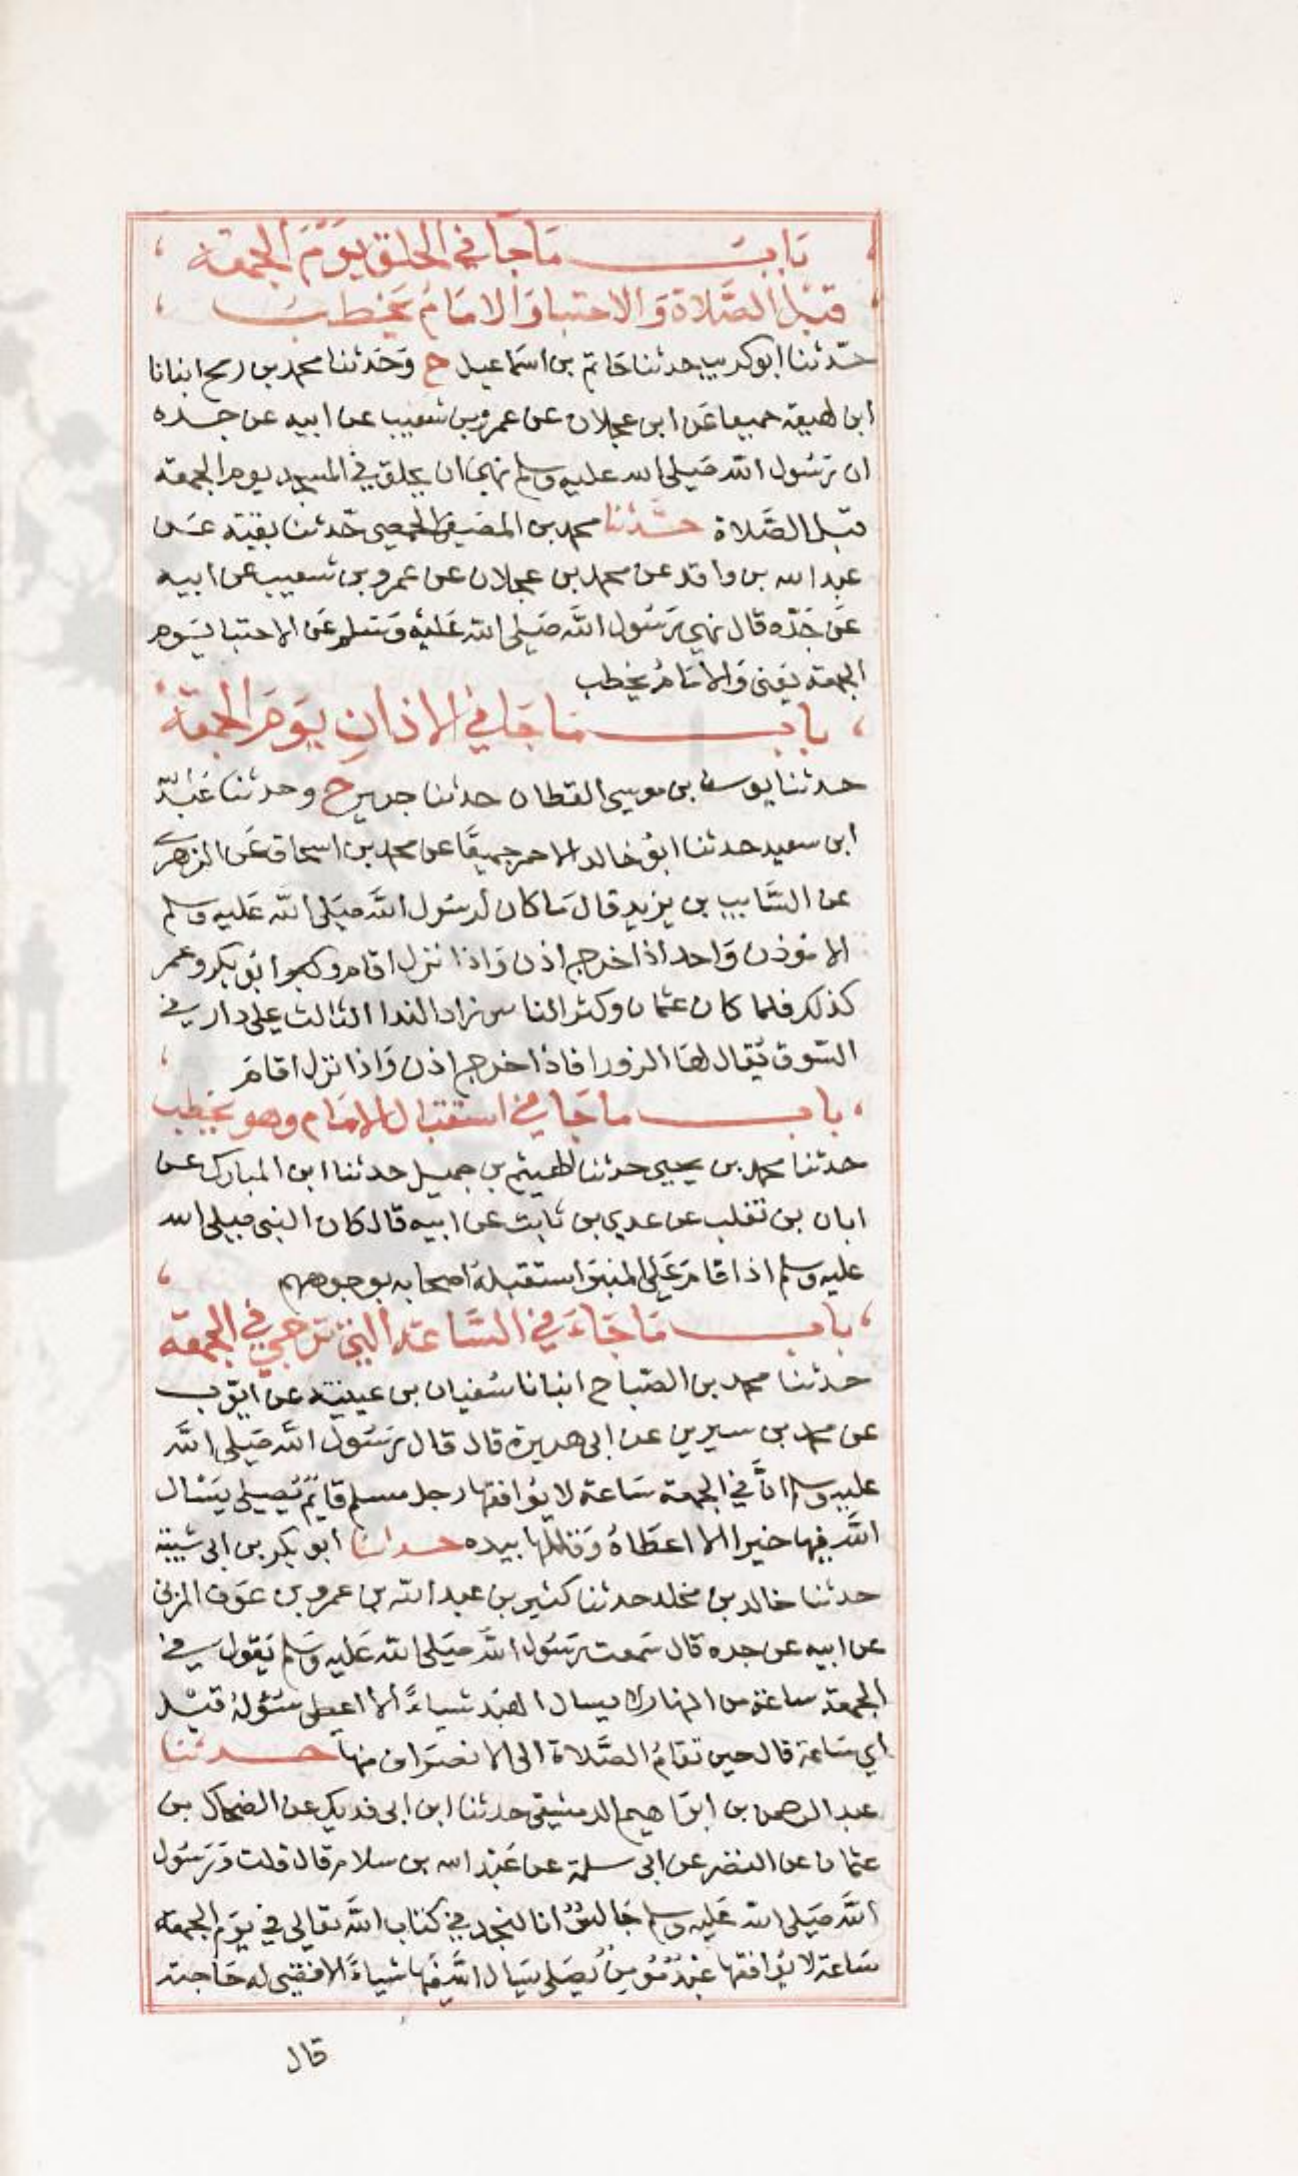 باب ما جا في الحلق يوم الجمعة
قبل الصلاة والاحتبا والامام يخطب
حدثنا ابو كريب حدثنا حاتم بن اسماعيل ح وحدثنا محمد بن رمح انبانا
ابن لهيعة جميعا عن ابن عجلان عن عمرو بن شعيب عن ابيه عن جده
ان رسول الله صلى الله عليه وسلم نهى ان يحلق في المسجد يوم الجمعة
قبل الصلاة حدثنا محمد بن المصفى الحمصي حدثنا بقية عن
عبد الله بن واقد عن محمد بن عجلان عن عمرو بن شعيب عن ابيه
عن جده قال نهى رسول الله صلى الله عليه وسلم عن الاحتبا يوم
الجمعة يعنى والامام يخطب
باب ما جا في الاذان يوم الجمعة
حدثنا يوسف بن موسى القطان حدثنا جرير ح وحدثنا عبد الله
ابن سعيد حدثنا ابو خالد الاحمر جميعا عن محمد بن اسحاق عن الزهري
عن السايب بن يزيد قال ما كان لرسول الله صلى الله عليه وسلم
الا موذن واحد اذا خرج اذن واذا نزل اقام وابو بكر وعمر
كذلك فلما كان عثمان وكثر الناس زاد الندا الثالث على دار في
السوق يقال لها الزورا فاذا خرج اذن واذا نزل اقام
باب ما جا في استقبال الامام وهو يخطب
حدثنا محمد بن يحيى حدثنا الهيثم بن جميل حدثنا ابن المبارك عن
ابان بن تغلب عن عدي بن ثابت عن ابيه قال كان النبي صلى الله
عليه وسلم اذا قام على المنبر استقبله اصحابه بوجوههم
باب ما جاء في الساعة التي ترجى في الجمعة
حدثنا محمد بن الصباح انبانا سفيان بن عيينة عن ايوب
عن محمد بن سيرين عن ابى هريرة قال قال رسول الله صلى الله
عليه وسلم ان في الجمعة ساعة لا يوافقها رجل مسلم قايم يصلي يسال
الله فيها خيرا الا اعطاه وقللها بيده حدثنا ابو بكر بن ابى شيبة
حدثنا خالد بن مخلد حدثنا كثير بن عبد الله بن عمرو بن عوف المزني
عن ابيه عن جده قال سمعت رسول الله صلى الله عليه وسلم يقول في
الجمعة ساعة من النهار لا يسال العبد شياء الا اعطى سؤله قيل
اي ساعة قال حين تقام الصلاة الى الانصراف منها حدثنا
عبد الرحمن بن ابراهيم الدمشقي حدثنا ابن ابى فديك عن الضحاك بن
عثمان عن النضر عن ابى سلمة عن عبد الله بن سلام قال قلت ورسول
الله صلى الله عليه وسلم جالس انا لنجد في كتاب الله تعالى في يوم الجمعة
ساعة لا يوافقها عبد مومن يصلى يسال الله فيها شياء الا قضى له حاجته
قال